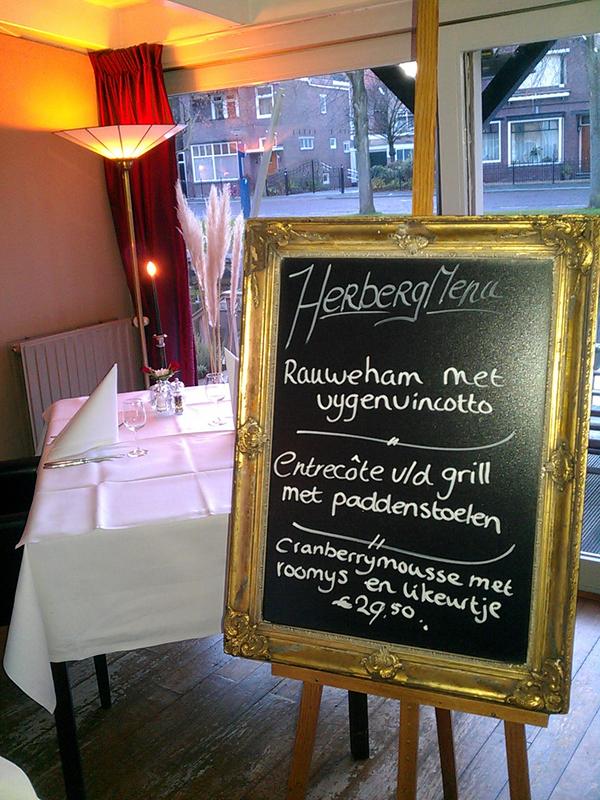 HerbergMenu
Rauweham met
vygenvincotto
Entrecôte v/d grill
met paddenstoelen
Cranberrymousse met
roomys en likeurtje
€29,50.